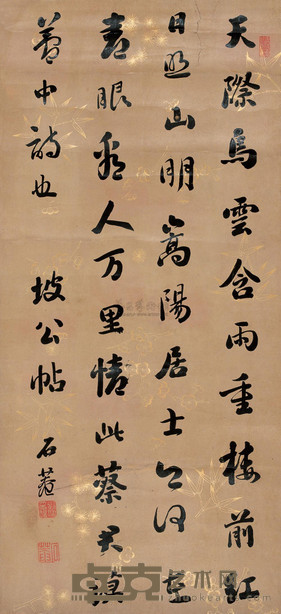 天際烏雲含雨重樓前紅
日照山明嵩陽居士今何在
青眼看人万里情此蔡君謨
夢中詩也 坡公帖 石菴
卓克艺术网